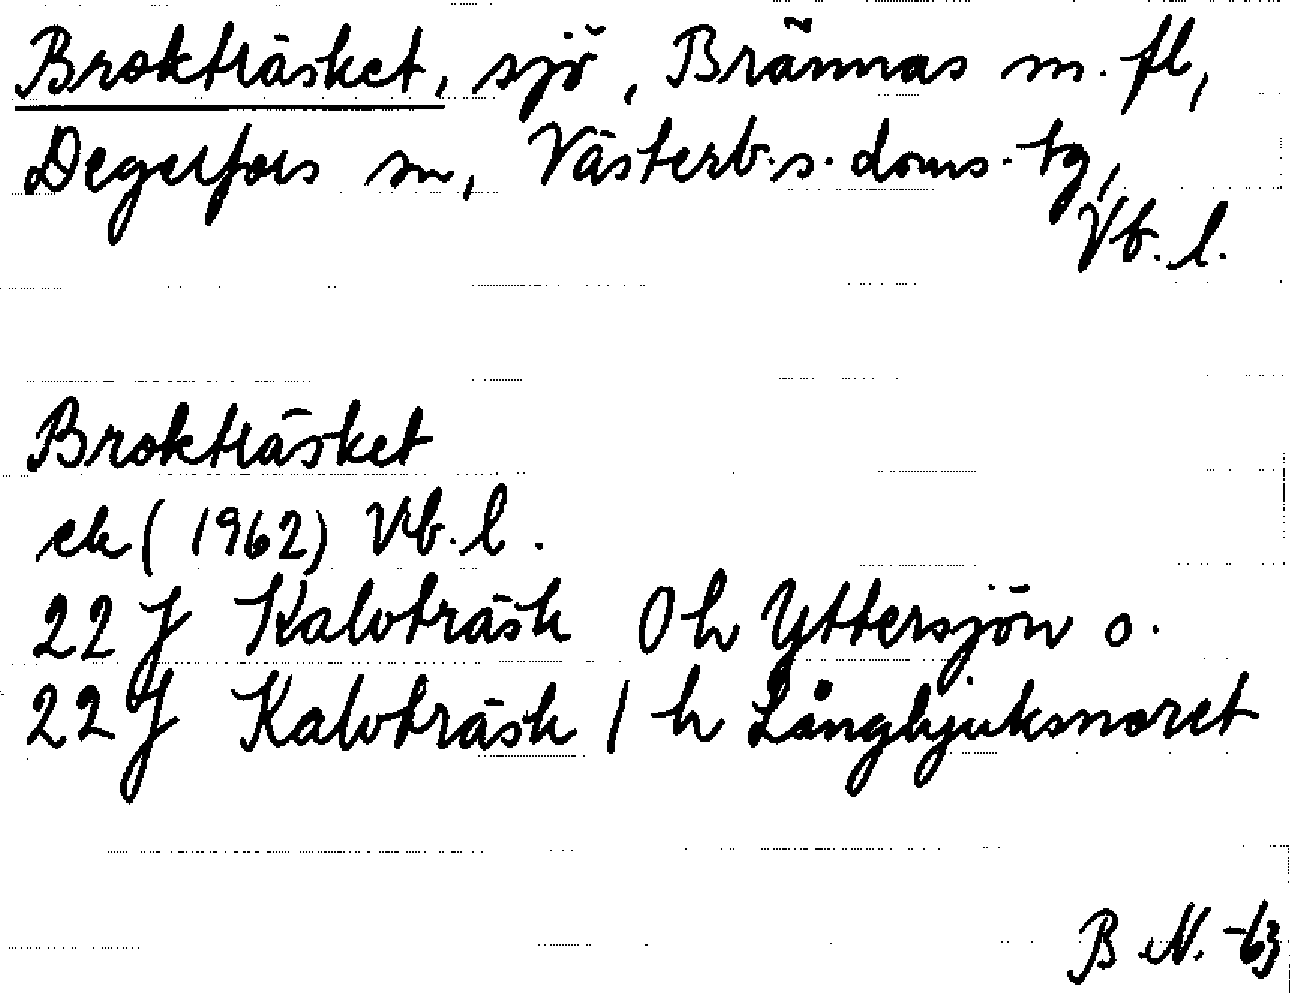 Brokträsket, sjö, Brännas m. fl,
Degerfors sn, Västerb. s. doms. tg,
Vb. l.
Brokträsket
ek (1962) Vb. l.
22 J Kalvträsk 0 h Yttersjön o.
22 J Kalvträsk 1 h Långbjuksnoret
B N. -63